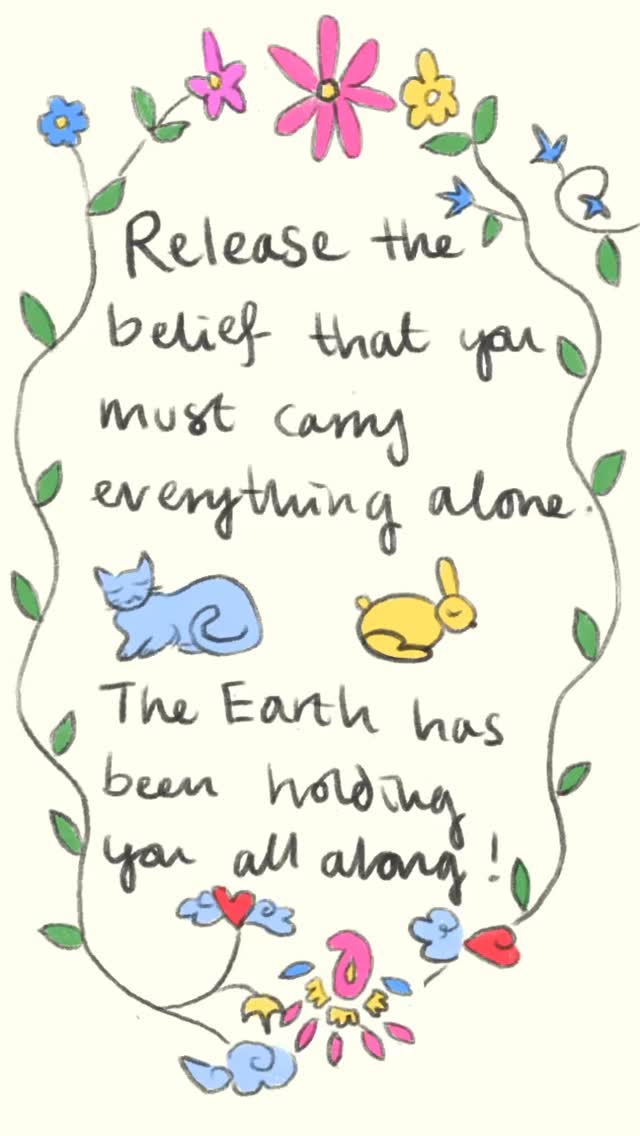 Release the
belief that you
must carry
everything alone.
The Earth has
been holding
you all along!